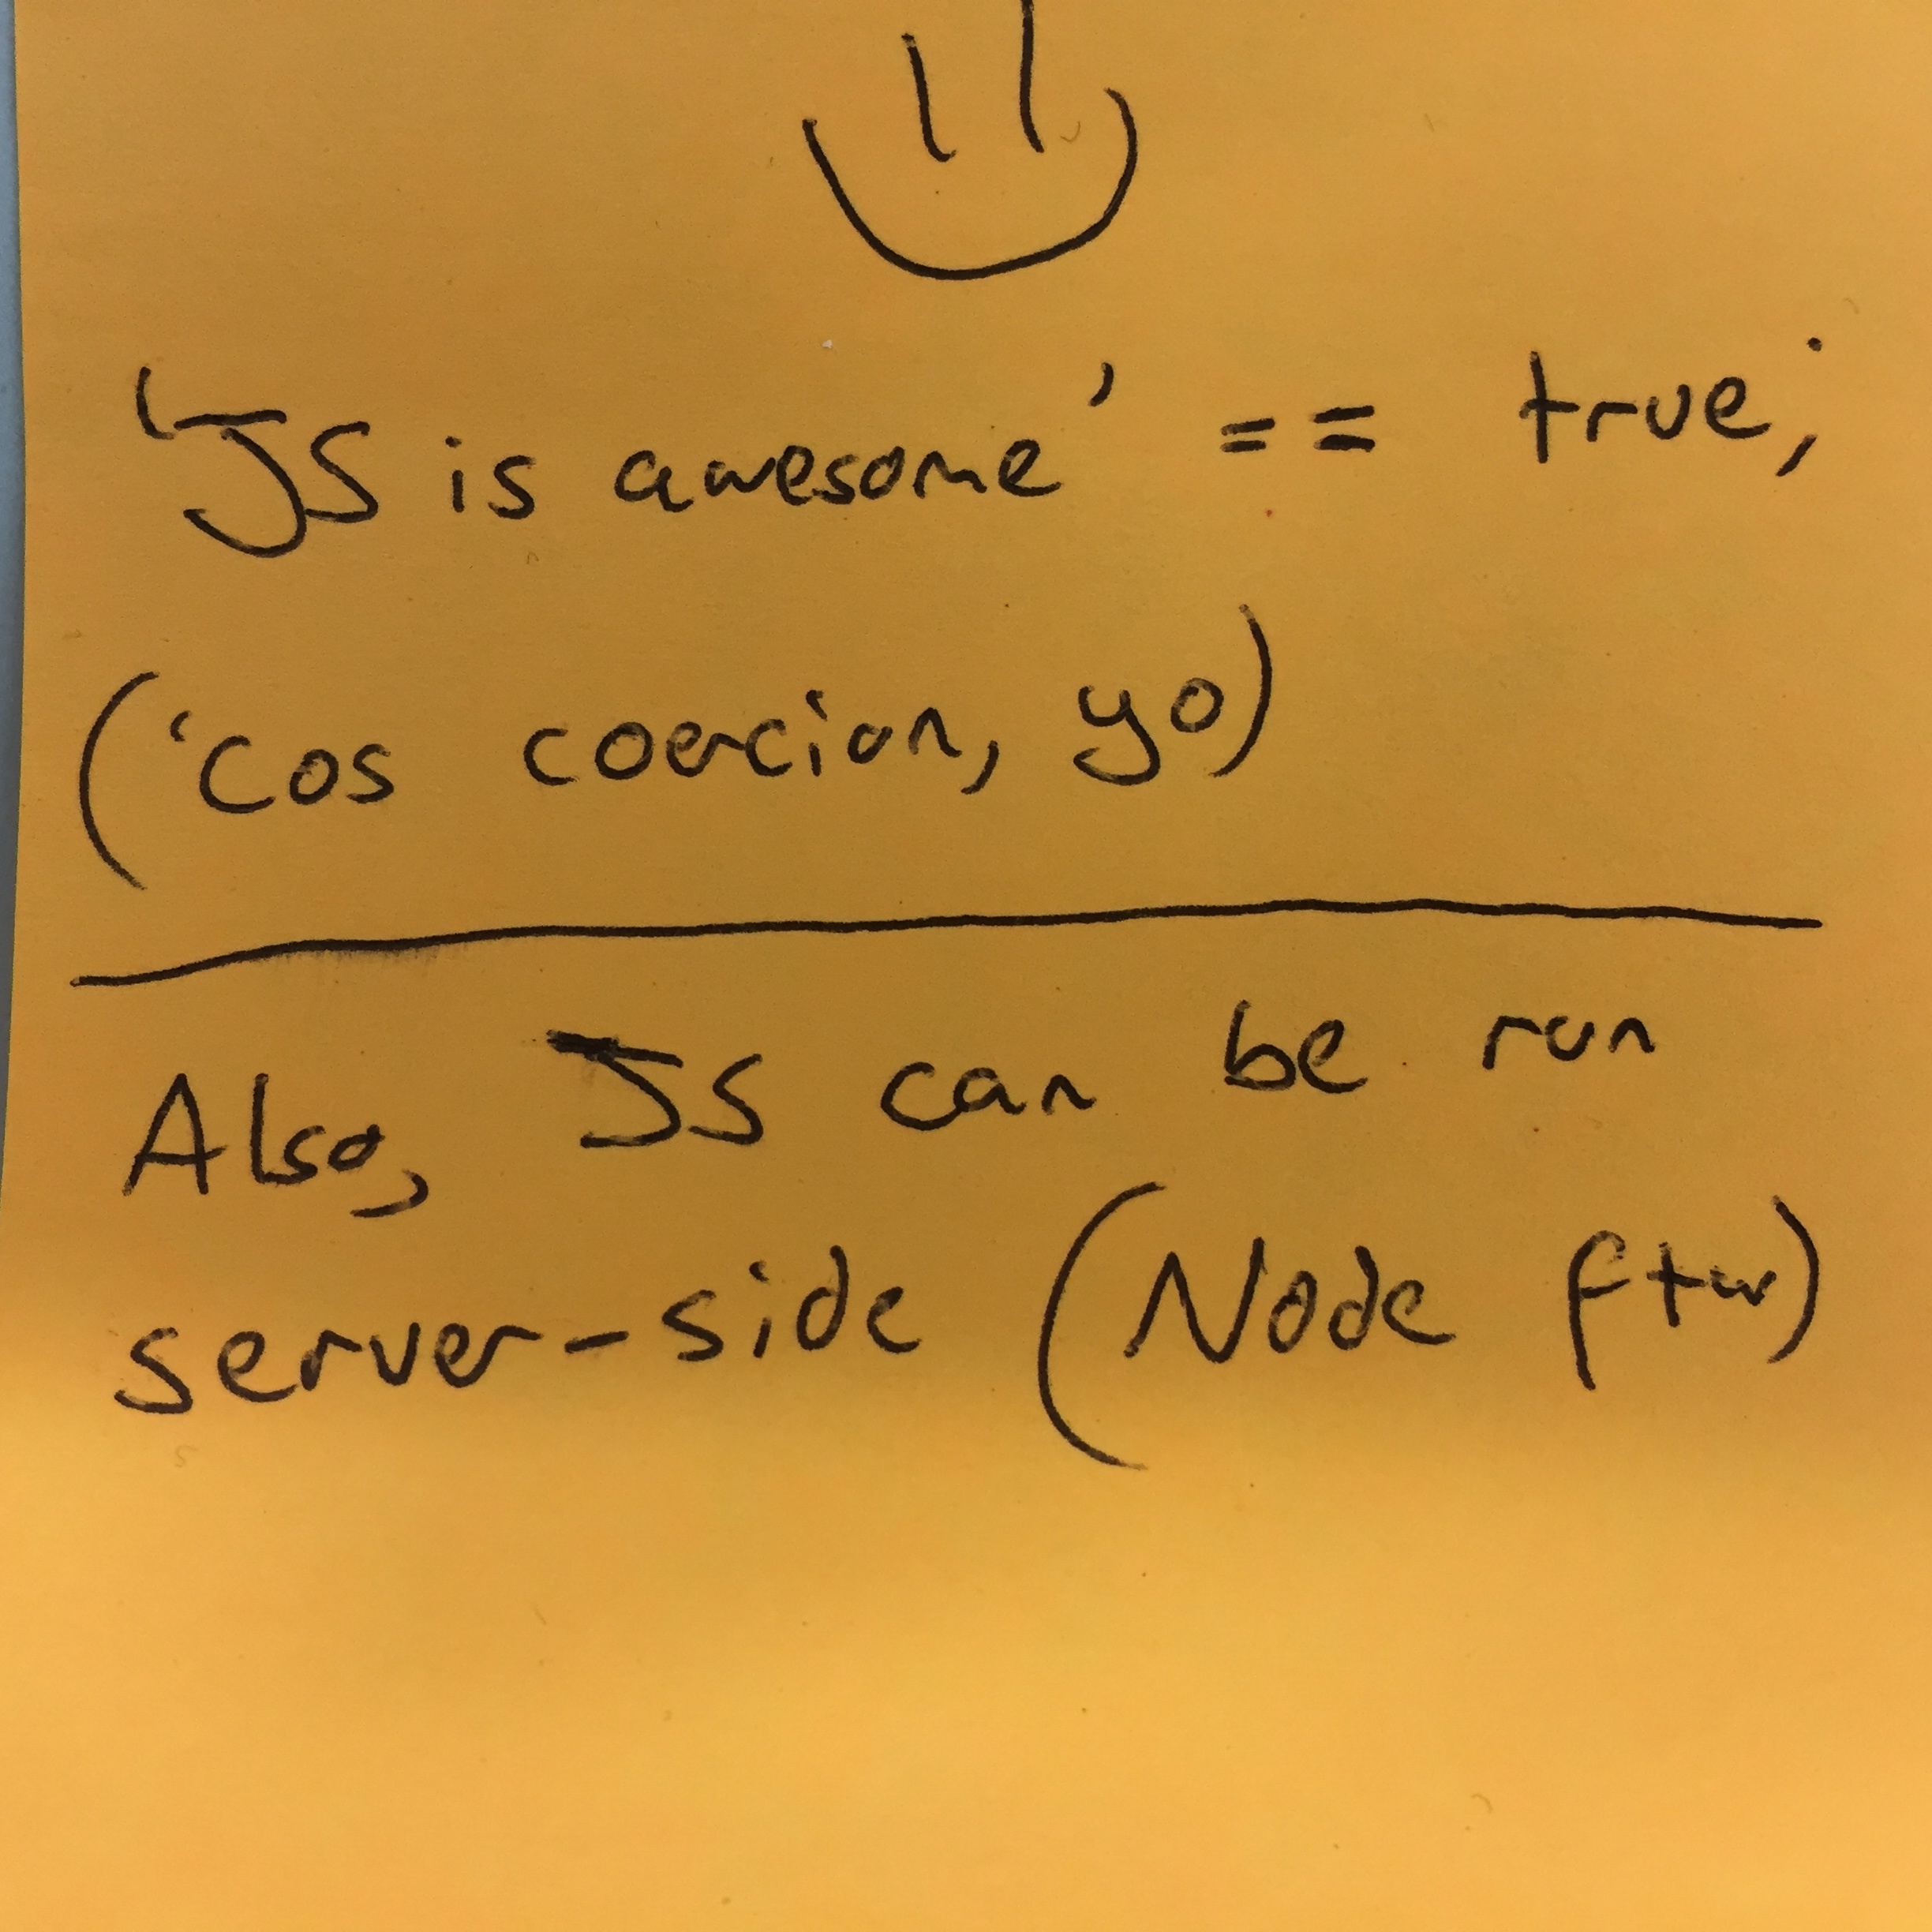 'JS is awesome' == true;
('cos coercion, yo)
Also, JS can be run
server-side (Node ftw)